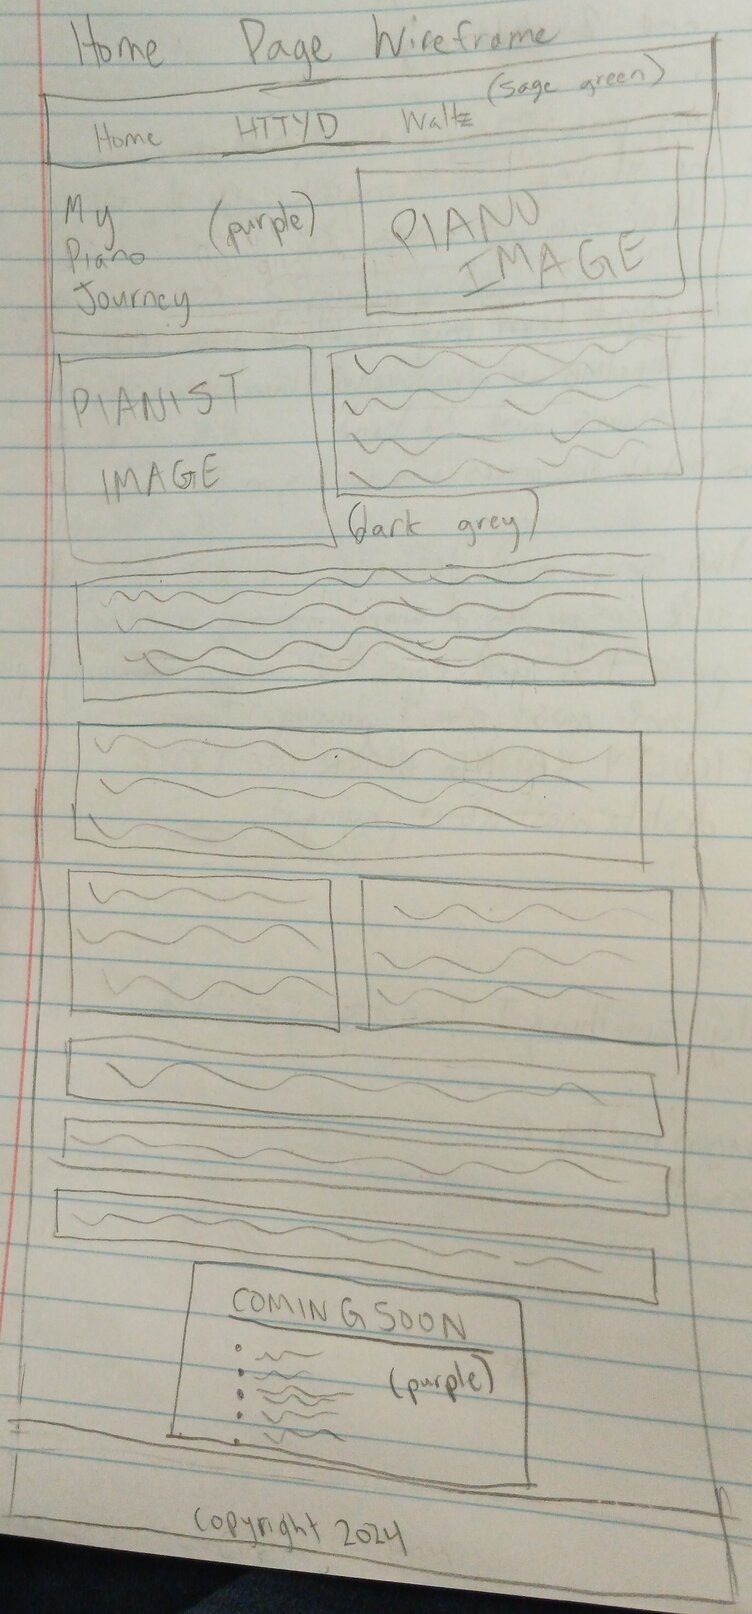 Home Page Wireframe
(sage green)
Home HTTYD Waltz
My
Piano
Journey
(purple)
PIANO
IMAGE
PIANIST
IMAGE
(dark grey)
COMING SOON
(purple)
Copyright 2024